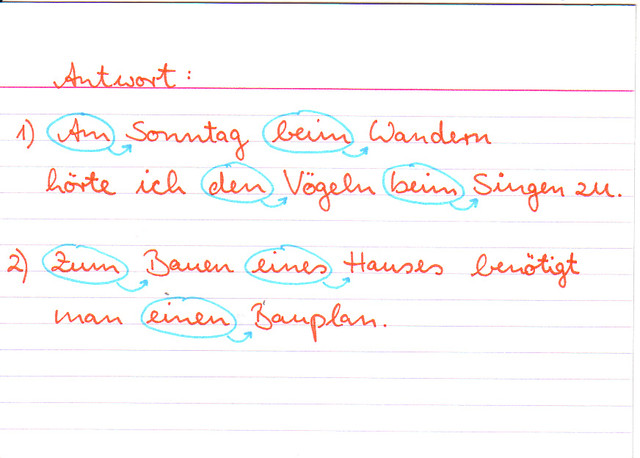 Antwort:
1) Am Sonntag beim Wandern
hörte ich den Vögeln beim Singen zu.
2) Zum Bauen eines Hauses benötigt
man einen Bauplan.